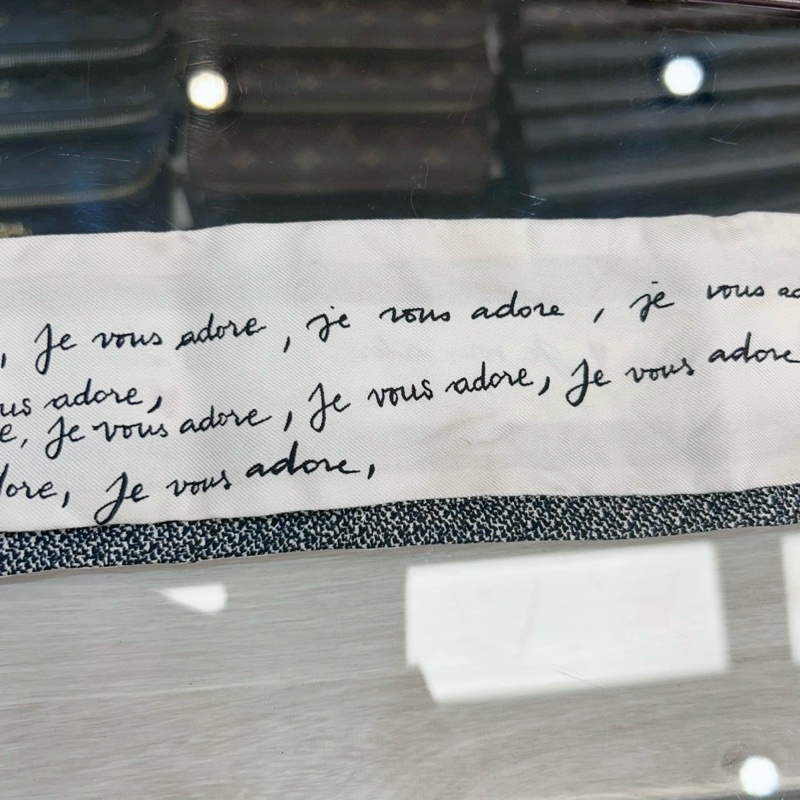 , Je vous adore, je vous adore, je vous ad
us adore,
e, Je vous adore, Je vous adore, Je vous adore
dore, Je vous adore,